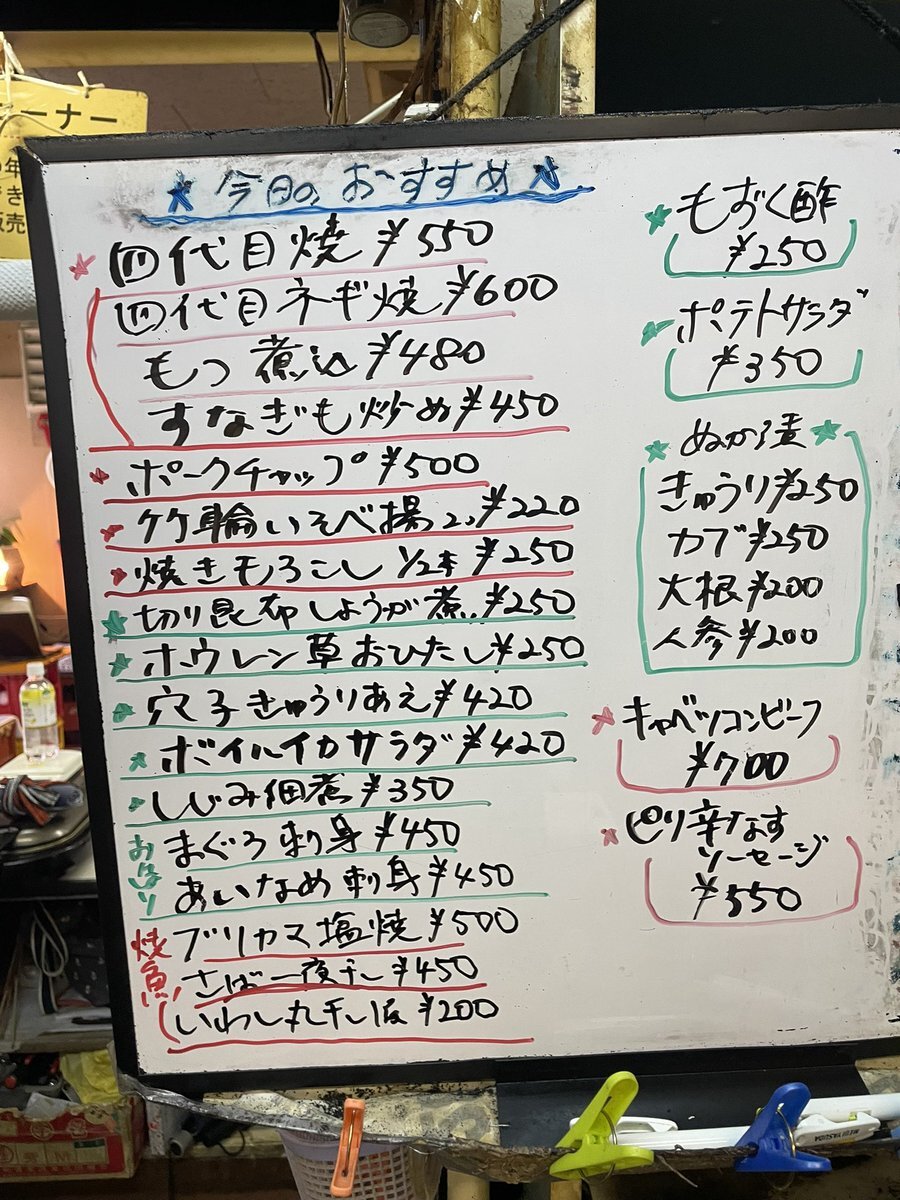 ーナー
今日のおすすめ
四代目焼 ¥550
四代目ネギ焼 ¥600
もつ煮込 ¥480
すなぎも炒め ¥450
ポークチャップ ¥500
竹輪いそべ揚 2コ ¥220
焼きもろこし 1/2本 ¥250
切り昆布しょうが煮 ¥250
ホウレン草おひたし ¥250
穴子きゅうりあえ ¥420
ボイルイカサラダ ¥420
しじみ佃煮 ¥350
おつくり
まぐろ刺身 ¥450
あいなめ刺身 ¥450
焼魚
ブリカマ塩焼 ¥500
さば一夜干し ¥450
いわし丸干し ¥200
もずく酢
¥250
ポテトサラダ
¥350
ぬか漬
きゅうり ¥250
カブ ¥250
大根 ¥200
人参 ¥200
キャベツコンビーフ
¥700
ピリ辛なす
ソーセージ
¥550